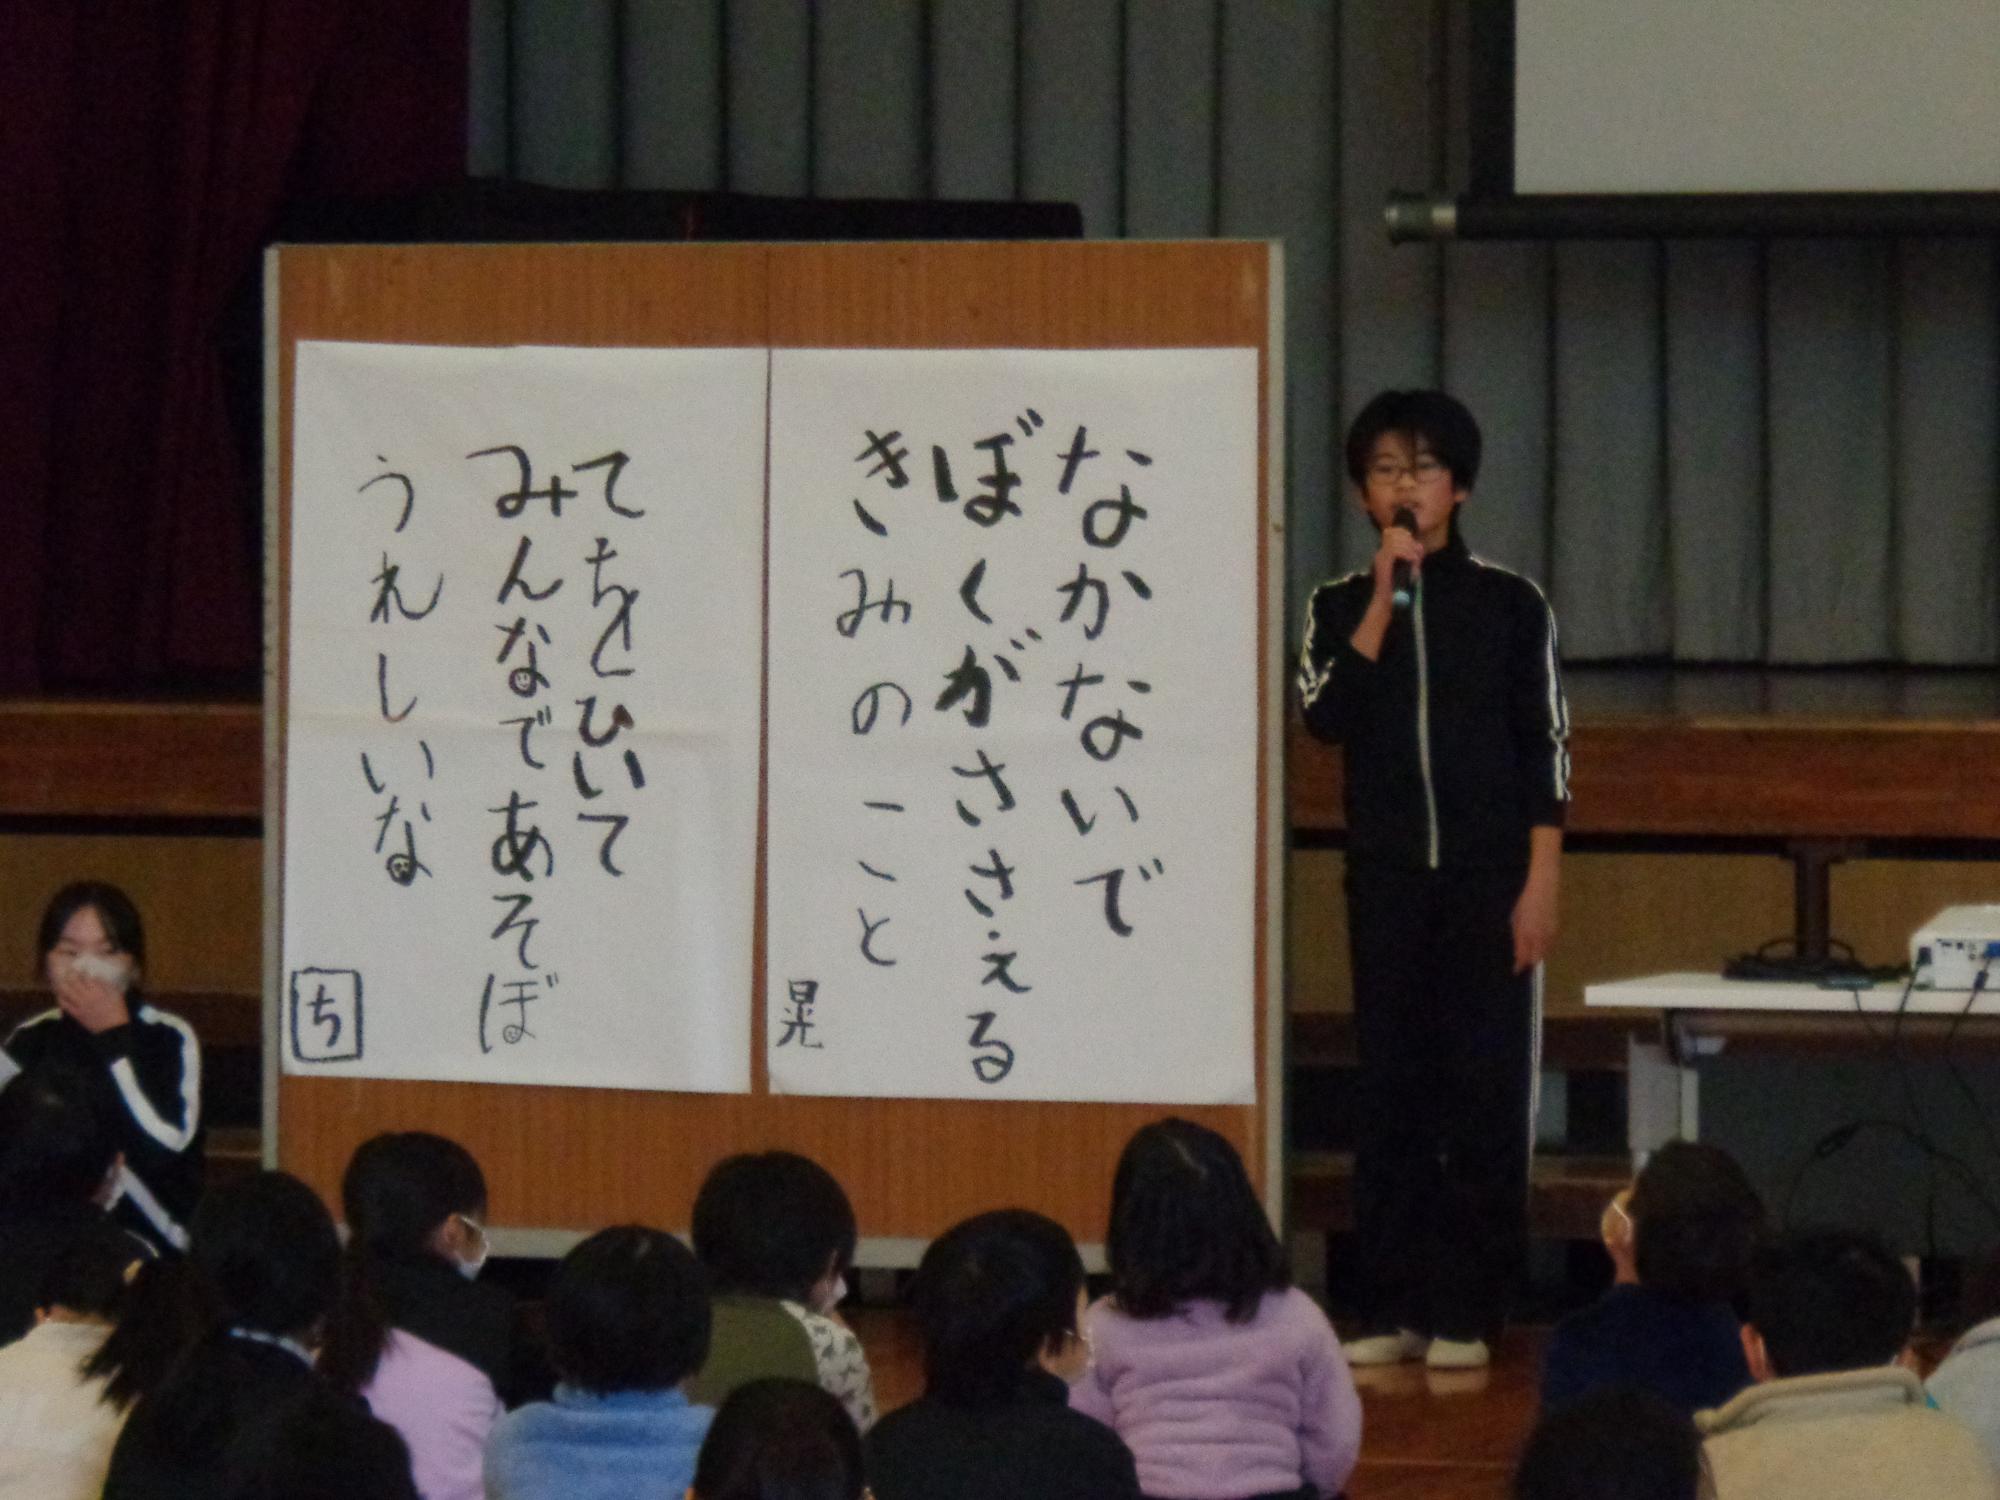 なかないで
ぼくがささえる
きみのこと
晃
てをひいて
みんなであそぼ
うれしいな
ち